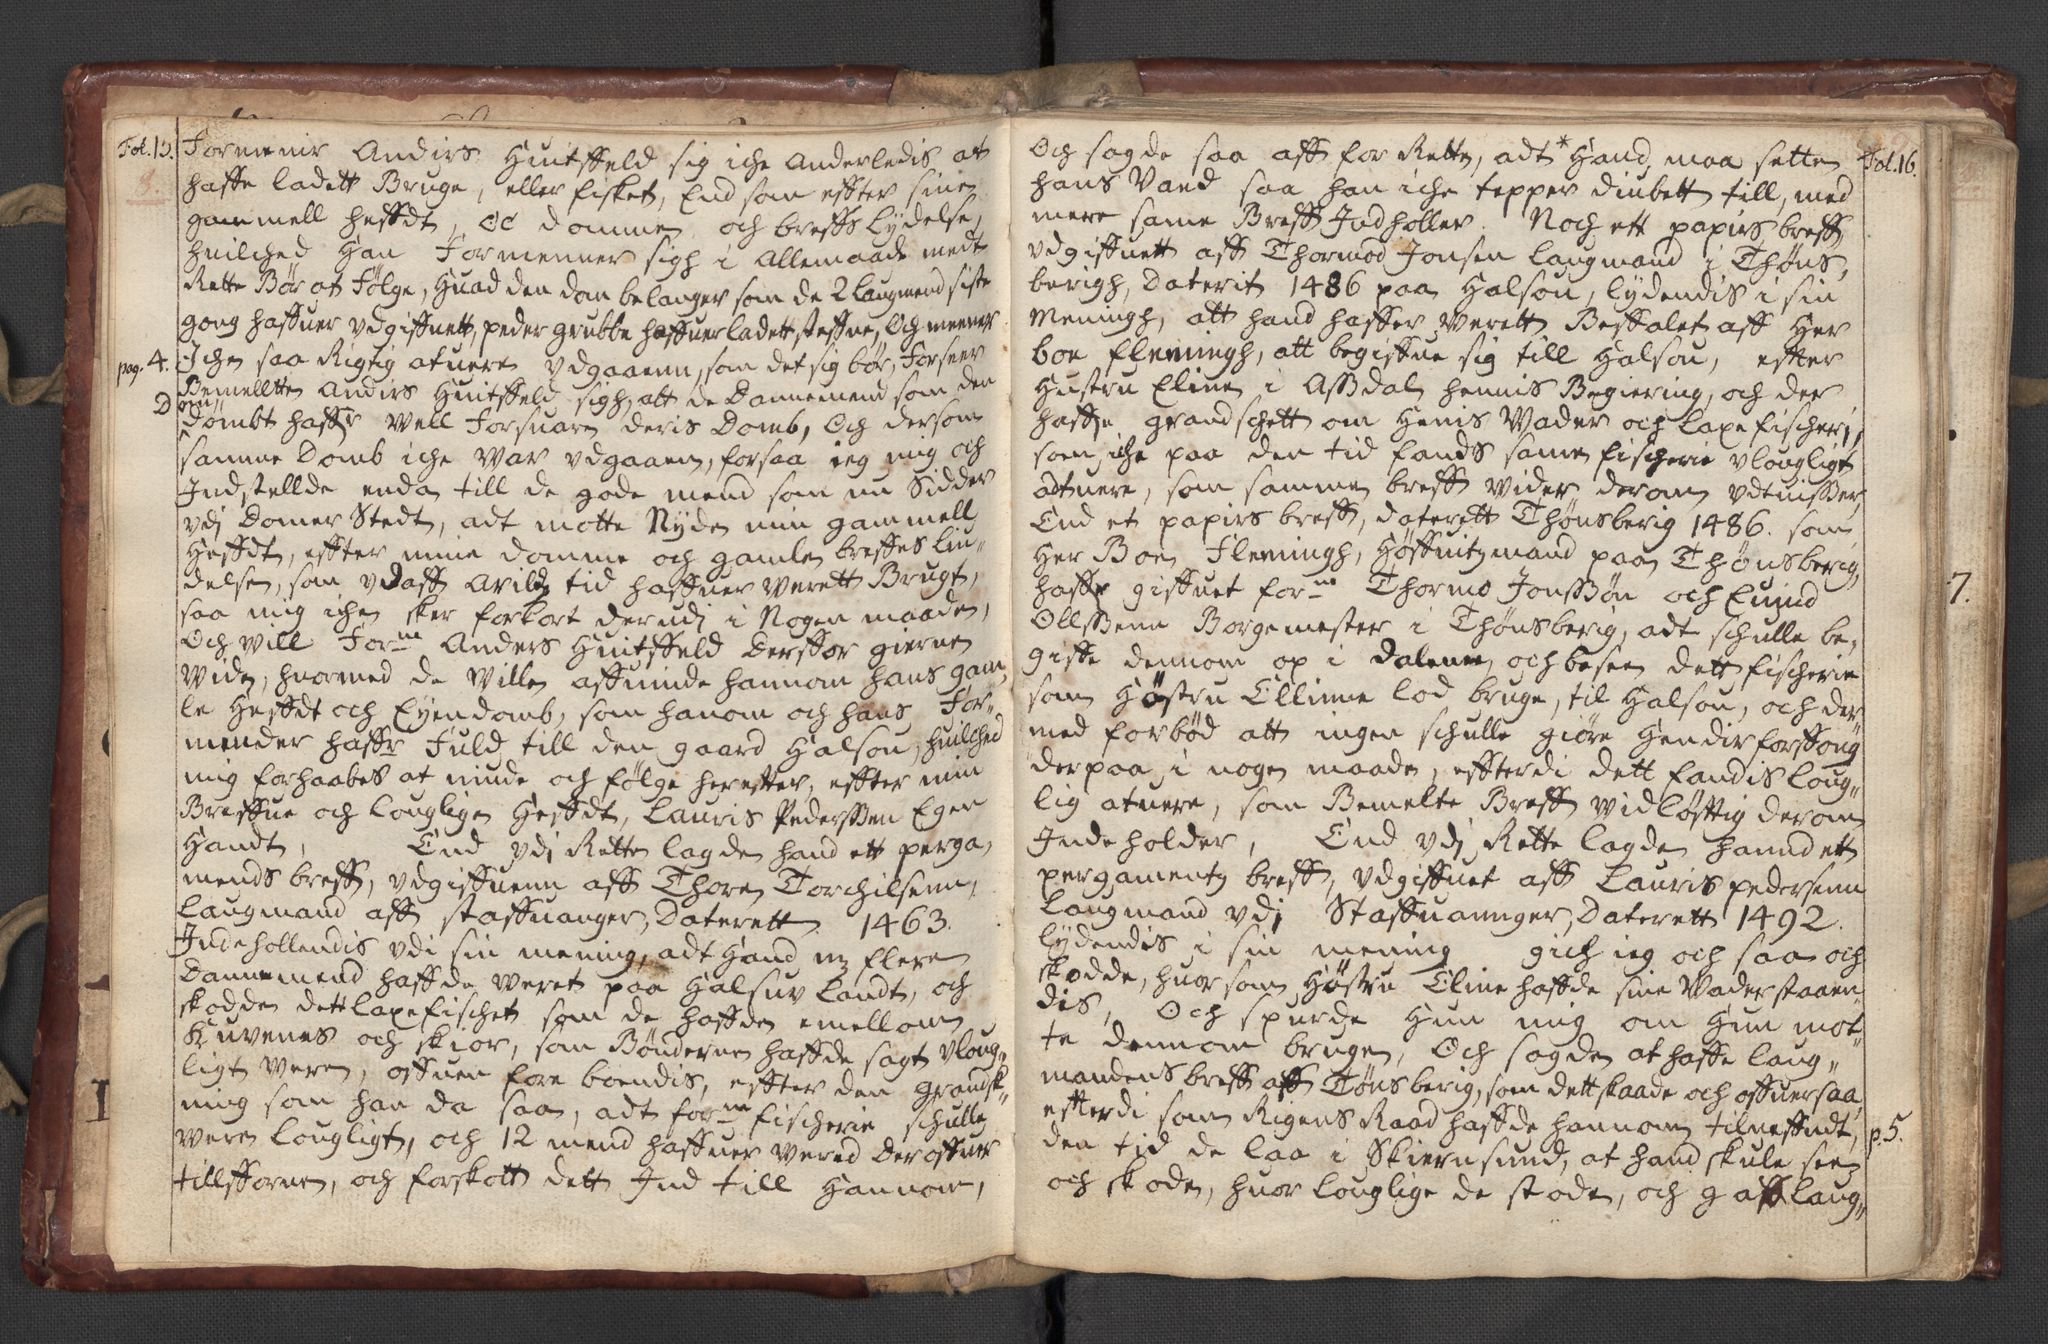 Fol. 15.
8.
Formener Anders Huitffeld sig iche Anderledis at
haffe ladett Bruge, eller fisket, End som effter sine
gammell heffdt, oc domme, och breffs Lydelse,
huilched Han Formenner sigh i Allemaade medt
Rette Bör at Fölge, Huad den dom belanger som de 2 Laugmend siste
gong haffuer udgiffuett, peder grubbe haffuer ladett steffne, Och meener
pag. 4.
Ichen saa Rigtig at uere udgaaenn, som det sig bör, Forseer
Bemelltte Anders Huitffeld sigh, att de Dannemend som den
Dom
dömbt haffr well Forsuare deris Domb, Och dersom
samme Domb iche war udgaaen, forsaa ieg mig och
Indstellde enda till de gode mend som nu Sidder
udj Domer Stedt, adt motte Nyde min gammell
Heffdt, effter mine domme och gamle breffes liu-
delse, som udaff Arildz tid haffuer werett Brugt,
saa mig ichen sker forkort derudj i Nogen maade,
Och will For.ne Anders Huitffeld Derffor gierne
wide, huormed de wille affuinde hannom hans gam-
le Heffdt och Eyendomb, som hanom och hans For-
mender haffr Fuld till den gaard Halsou, huilched
mig forhaabes at niude och fölge hereffter, effter min
Breffue och louglige Heffdt, Lauris Pederssen Egen
Handt, End udj Rette lagde hand ett perga-
mends breff, udgiffuenn aff Thore Torchilsenn,
Laugmand aff staffuanger, Daterett 1463.
Indehollendis udi sin mening, adt Hand m flere
Dannemend haffde weret paa Halsuv Landt, och
skodde dett laxefischet som de haffde emellom
Kuvenes och skior, som Bönderne haffde sagt vloug-
ligt were, offuen fore boendis, effter den grandsk-
ning som han da saa, adt for.ne fischerie schulle
were lougligt, och 12 mend haffuer wered deroffuer
tillfforne, och forskott dett Ind till Hannom,
Fol. 16.
Och sagde saa aff for Rette, adt * Hand maa sette
hans Vaed saa han iche tepper diubett till, med
mere same Breff Indholler. Noch ett papirs breff
udgiffuett aff Thormod Jonsen laugmand i Thöns-
berigh, Daterit 1486 paa Halsou, lydendis i sin
Meningh, att hand haffer werett Beffalet aff Her
boe Flemingh, att begiffue sig till Halsou, effter
Hustru Eline i Assdal hennis Begiering, och der
haffe grandschett om Henis Vader och laxefischeri,
som iche paa den tid fands same fischerie vlougligt
adt uere, som samme breff wider derom udtuisser,
End et papirs breff, daterett Thönsberig 1486. som
Her Boe Flemingh, Höffuitzmand paa Thönsberig,
haffr giffuet for.ne Thormo Jonssön och Euind
Ollssenn Borgemester i Thönsberig, adt schulle be-
giffe dennom op i Dalenne, och besee dett fischerie
som Höstru Ellinne lod bruge, til Halsou, och der
med forböd att ingen schulle giöre Hendir forffong
derpaa i nogen maade, effterdi dett fandis loug-
lig at uere, som Bemelte Breff widlöfftig derom
Indeholder, End udj Rette lagde hannd et
pergamentz breff, udgiffuet aff Lauris pedersenn
Laugmand udj Staffuannger, Daterett 1492.
lydendis i sin mening gich ieg och saa och
skodde, huor som Höstru Eline haffde sine Vader staaen-
dis, Och spurde Hun mig om Hun mot-
te dennom bruge, Och sagde at haffe laug-
mandens breff aff Tönsberig, som dett skaade och offuersaa,
effterdi som Rigens Raad haffde hannom tilneffndt,
p. 5.
den tid de laa i Skiernsund, at hand skule see
och skode, huor louglige de stode, och gaff laug-
7.